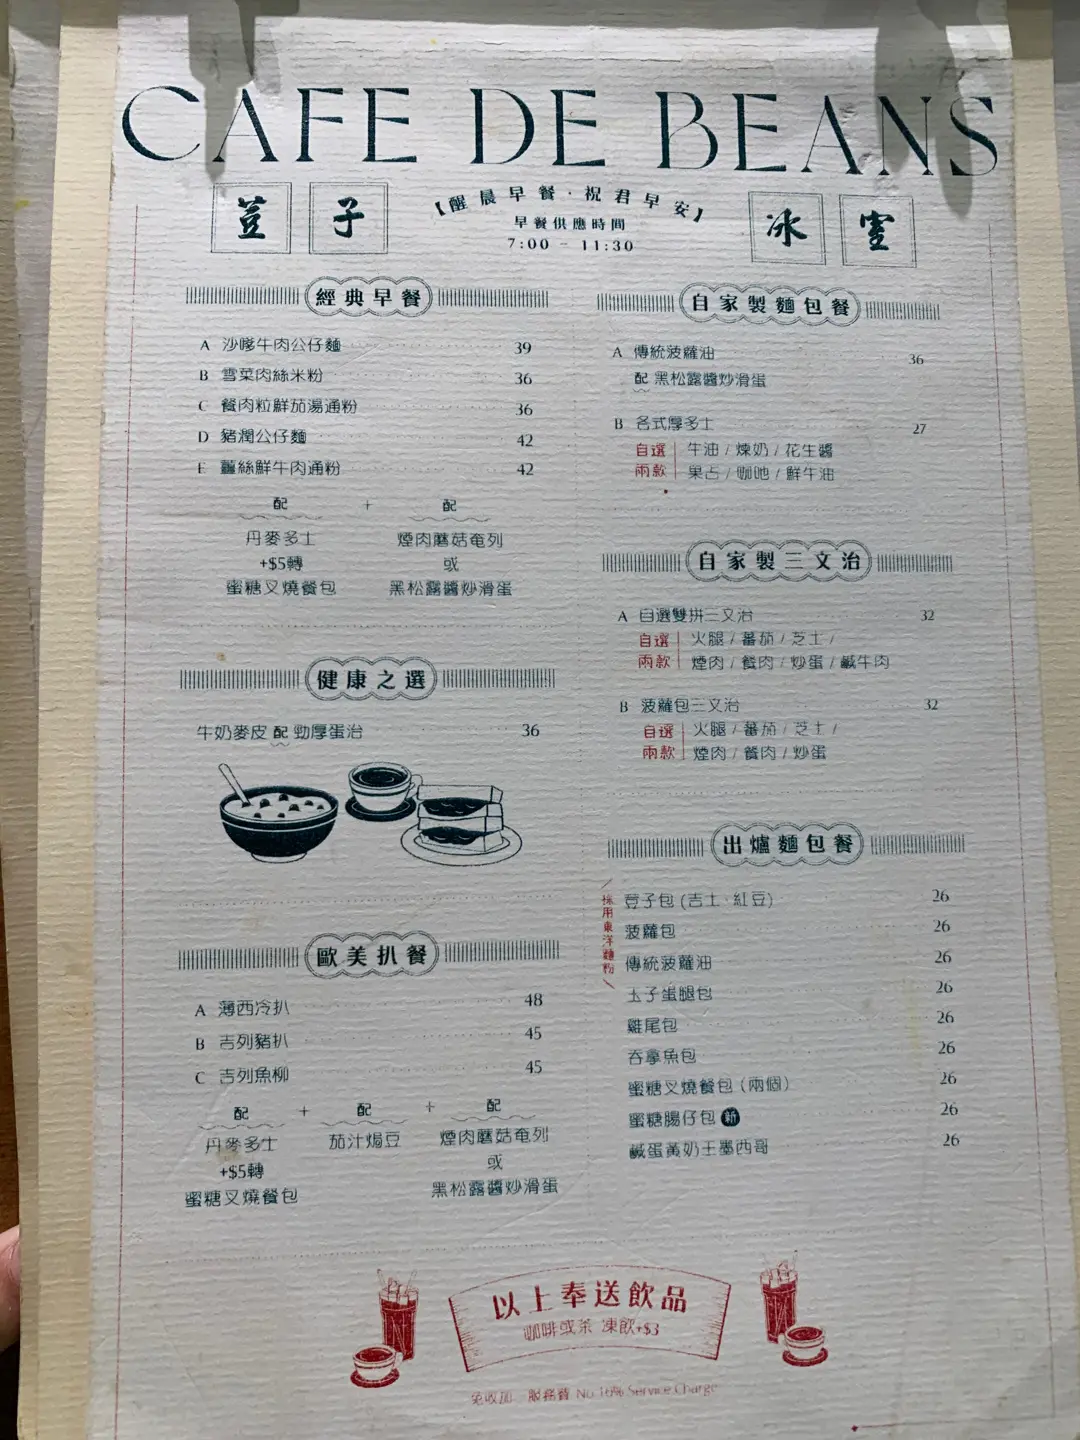 CAFE DE BEANS
荳子
冰室
【醒晨早餐·祝君早安】
早餐供應時間
7:00 - 11:30
經典早餐
A 沙嗲牛肉公仔麵 39
B 雪菜肉絲米粉 36
C 餐肉粒鮮茄湯通粉 36
D 豬潤公仔麵 42
E 薑絲鮮牛肉通粉 42
配 + 配
丹麥多士 煙肉蘑菇奄列
+$5轉 或
蜜糖叉燒餐包 黑松露醬炒滑蛋
健康之選
牛奶麥皮 配 勁厚蛋治 36
歐美扒餐
A 薄西冷扒 48
B 吉列豬扒 45
C 吉列魚柳 45
配 + 配 + 配
丹麥多士 茄汁焗豆 煙肉蘑菇奄列
+$5轉 或
蜜糖叉燒餐包 黑松露醬炒滑蛋
自家製麵包餐
A 傳統菠蘿油 36
配 黑松露醬炒滑蛋
B 各式厚多士 27
自選 牛油 / 煉奶 / 花生醬
兩款 果占 / 咖吔 / 鮮牛油
自家製三文治
A 自選雙拼三文治 32
自選 火腿 / 蕃茄 / 芝士 /
兩款 煙肉 / 餐肉 / 炒蛋 / 鹹牛肉
B 菠蘿包三文治 32
自選 火腿 / 蕃茄 / 芝士 /
兩款 煙肉 / 餐肉 / 炒蛋
出爐麵包餐
採用東洋麵粉
荳子包 (吉士·紅豆) 26
菠蘿包 26
傳統菠蘿油 26
玉子蛋腿包 26
雞尾包 26
吞拿魚包 26
蜜糖叉燒餐包 (兩個) 26
蜜糖腸仔包 新 26
鹹蛋黃奶王墨西哥 26
以上奉送飲品
咖啡或茶 凍飲+$3
免收加一服務費 No 10% Service Charge